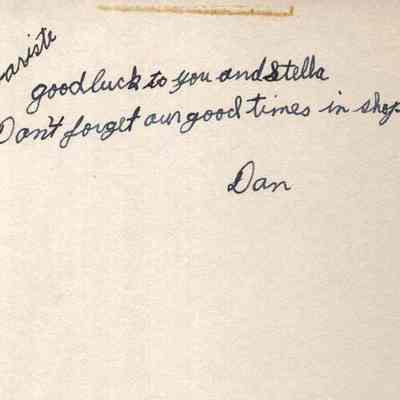 ariste
good luck to you and Stella
Don't forget our good times in shop
Dan